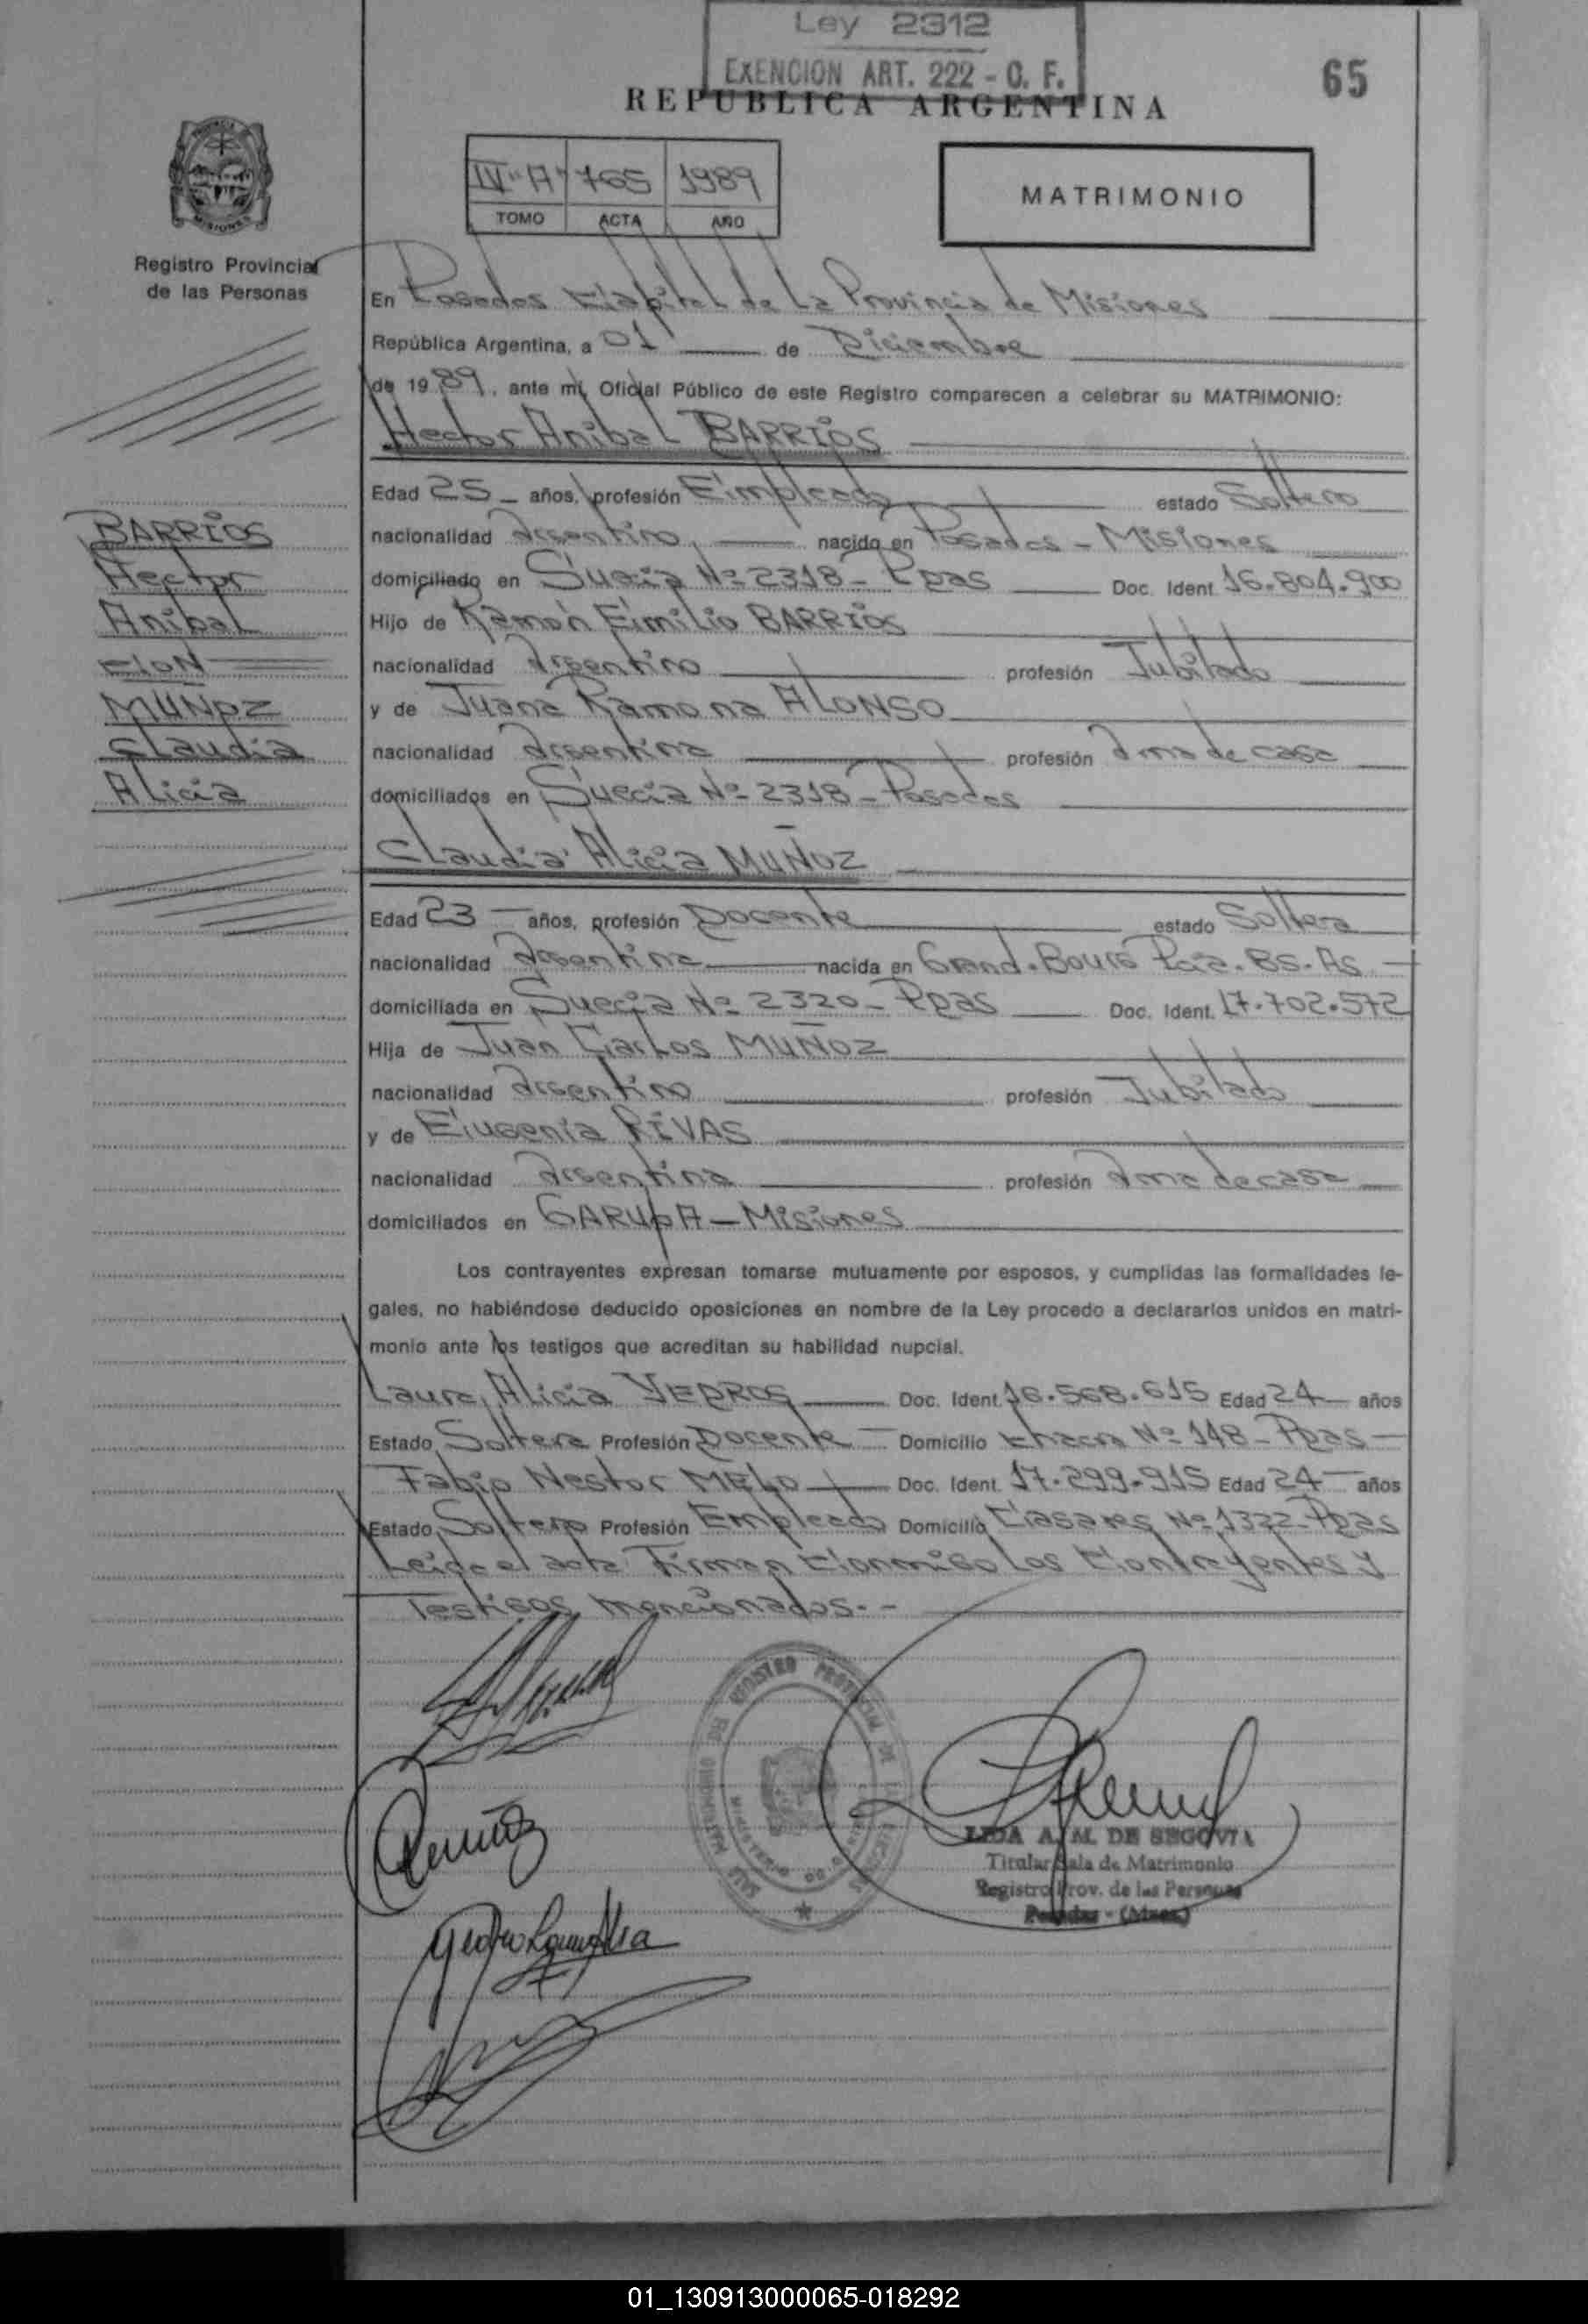 Ley 2312
EXENCION ART. 222 - C. F.
65
REPUBLICA ARGENTINA
IV "A" 765 1989
TOMO ACTA AÑO
MATRIMONIO
PROVINCIA DE
MISIONES
Registro Provincial
de las Personas
En Posadas Capital de La Provincia de Misiones
República Argentina, a 01 de Diciembre
de 1989, ante mí, Oficial Público de este Registro comparecen a celebrar su MATRIMONIO:
Hector Anibal BARRIOS
Edad 25 años, profesión Empleado estado Soltero
nacionalidad Argentino nacido en Posadas - Misiones
domiciliado en Suecia Nº 2318 - Ppas Doc. Ident. 16.804.900
Hijo de Ramón Emilio BARRIOS
nacionalidad Argentino profesión Jubilado
y de Juana Ramona ALONSO
nacionalidad Argentina profesión Ama de casa
domiciliados en Suecia Nº 2318 - Posadas
BARRIOS
Hector
Anibal
CON
MUÑOZ
Claudia
Alicia
Claudia Alicia MUÑOZ
Edad 23 años, profesión Docente estado Soltera
nacionalidad Argentina nacida en Grand. Bourg Pcia. Bs. As
domiciliada en Suecia Nº 2320 - Ppas Doc. Ident. 17.702.572
Hija de Juan Carlos MUÑOZ
nacionalidad Argentino profesión Jubilado
y de Eugenia RIVAS
nacionalidad Argentina profesión Ama de casa
domiciliados en GARUPA - Misiones
Los contrayentes expresan tomarse mutuamente por esposos, y cumplidas las formalidades le-
gales, no habiéndose deducido oposiciones en nombre de la Ley procedo a declararlos unidos en matri-
monio ante los testigos que acreditan su habilidad nupcial.
Laura Alicia YEDROS Doc. Ident. 16.568.615 Edad 24 años
Estado Soltera Profesión Docente Domicilio Chacra Nº 148 - Ppas
Fabio Nestor MELO Doc. Ident. 17.299.915 Edad 24 años
Estado Soltero Profesión Empleado Domicilio Casares Nº 1322 - Ppas
Leida el acta Firman Conmigo Los Contrayentes y
Testigos mencionados. -
REGISTRO PROVINCIAL DE LAS PERSONAS
SALA DE MATRIMONIO
LIDA A. M. DE SEGOVIA
Titular Sala de Matrimonio
Registro Prov. de las Personas
Posadas - (Mnes)
01_130913000065-018292